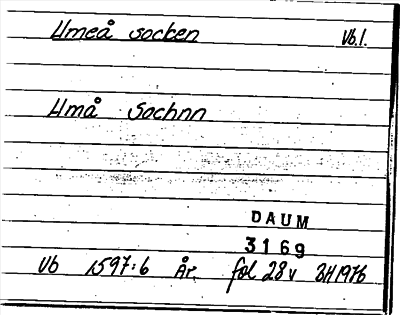 Umeå socken Vb.l.
Umå Sochnn
DAUM
3169
Vb 1597:6 År fol 28v BH1976